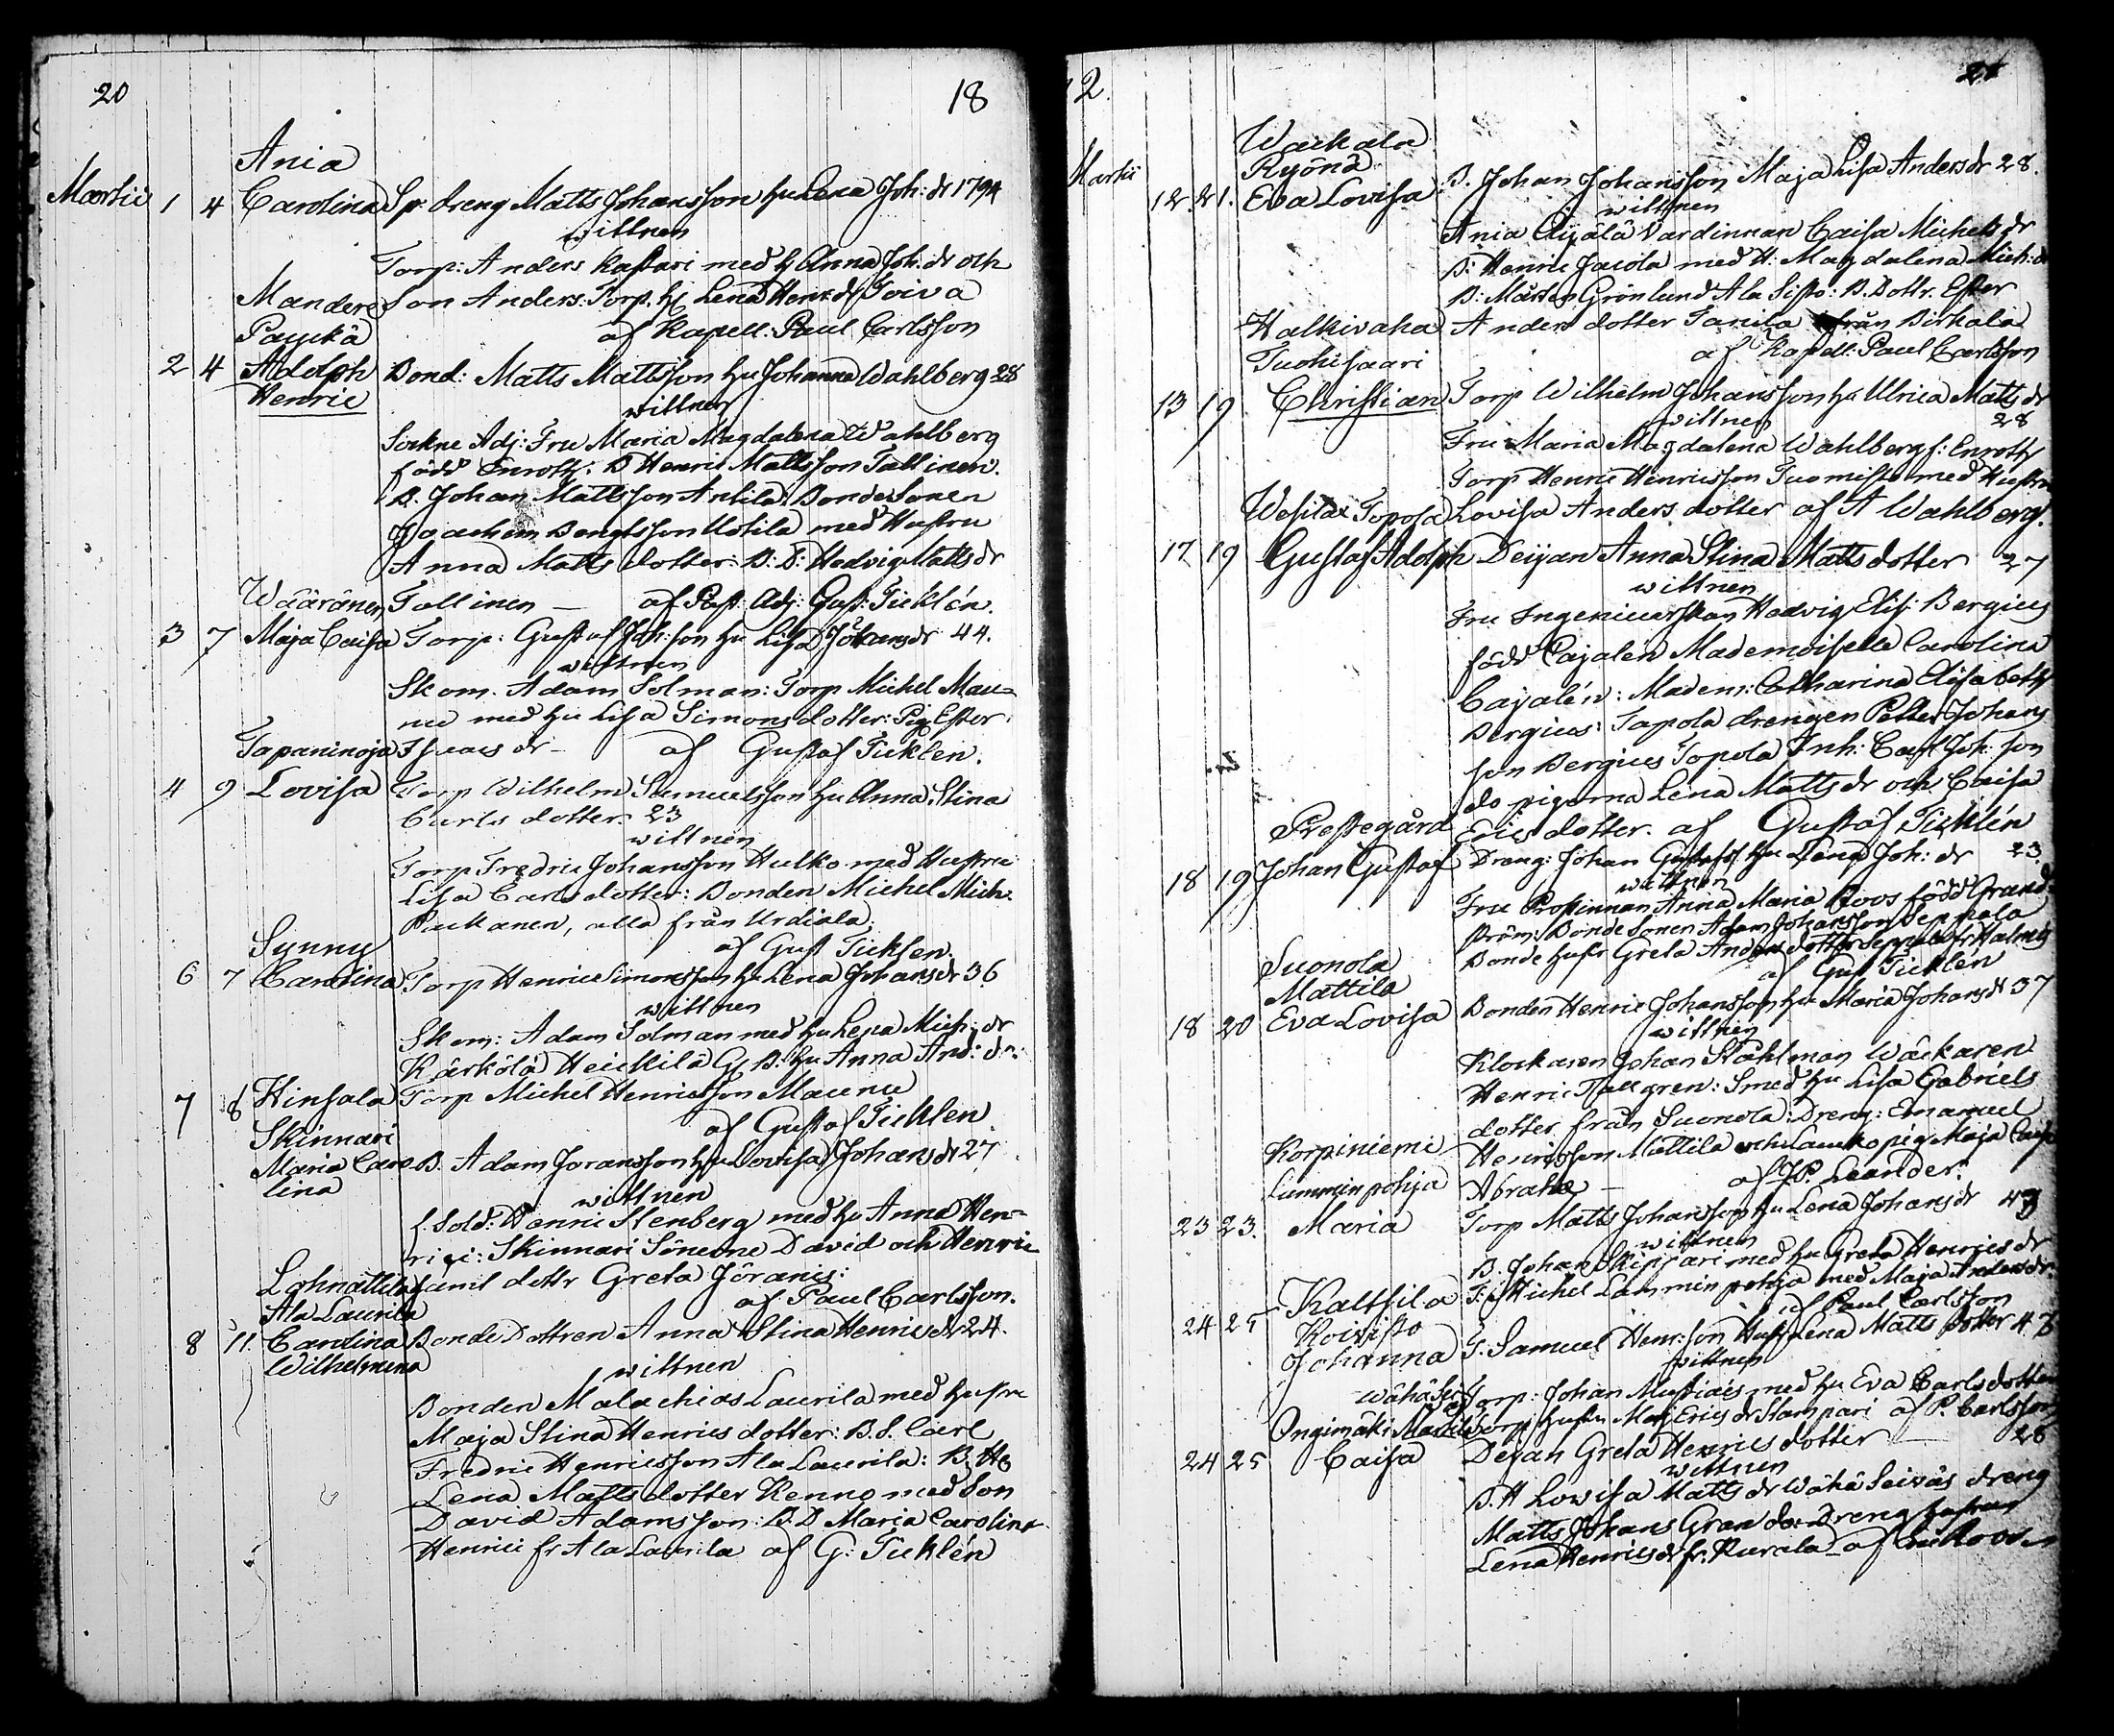 20 18
Ania
Martii 1 4 Carolina Sp. dreng Matts Johansson hu Lena Joh: dr 1794
wittnen
Torp: Anders Kastari med h Anna Joh. dr och
Mandere Son Anders: Torp. hj Lena Henr: dr Toiva
Paucka af Kapell: Paul Carlsson
2 4 Adolph Bond: Matts Mattsson hu Johanna Wahlberg 28
Henric wittnen
Sockne Adj: Fru Maria Magdalena Wahlberg
född Enroth. B Henric Mattsson Tallinen.
B. Johan Mattsson Antila: Bonde Sonen
Joachim Bengtsson Uotila med Hustru
Anna Matts dotter: B: D: Hedvig Matts dr
Wääränen Tallinen — af Past: Adj: Gust: Ticklén.
3 7 Maja Caisa Torp: Gustaf Joh: son hu Lisa Johans dr 44.
wittnen
Skom. Adam Solman: Torp Michel Mau-
nu med hu Lisa Simons dotter: Pig Ester
Tapaninoja Isaacs dr — af Gustaf Ticklén.
4 9 Lovisa Torp Wilhelm Samuelsson hu Anna Stina
Carls dotter 23
wittnen
Torp Fredric Johansson Hulko med Hustru
Lisa Carls dotter: Bonden Michel Mich.
Packanen, alla från Urdiala.
Synny af Gust Ticklen.
6 7 Carolina Torp Henric Simonsson hu Lena Johans dr 36
wittnen
Skom: Adam Solman med hu Lena Mich: dr
Kärkölä Heickilä G. B. hu Anna And: dr:
7 8 Hinsala Torp Michel Henricsson Maunu
Skinnari af Gustaf Ticklen.
Maria Caro- B. Adam Joransson hu Lovisa Johans dr 27
lina wittnen
f. Sold: Henric Stenberg med hu Anna Hen-
rici: Skinnari Sönerne David och Henric
Lohnattila samt dottr Greta Jöranis:
Ala Laurila af Paul Carlsson.
8 11. Carolina Bonde Dottren Anna Stina Henrics dr 24.
Wilhelmina wittnen
Bonden Malachias Laurila med hustru
Maja Stina Henrics dotter: B. S. Carl
Fredric Henricsson Ala Laurila: B. H
Lena Matts dotter Kenno med Son
David Adamsson: B. D Maria Carolina
Henrici fr Ala Laurila af G: Ticklén
12. 21
Wackala
Martii Ryönä
12. 21. Eva Lovisa B. Johan Johansson Maja Lisa Anders dr 28.
wittnen
Ania Äijälä Vardinnan Caisa Michels dr
B: Henric Jacola med H: Magdalena Mich: dr
B: Mårten Grönlund Ala Sisto: B. Dottr. Ester
Halkivaha Anders dotter Tanila från Birkala
Tuohisaari af Kapell: Paul Carlsson
13 19 Christian Torp Wilhelm Johansson hu Ulrica Matts dr
wittnen 28
Fru Maria Magdalena Wahlberg f: Enroth
Torp Henric Henricsson Tuomisto med Hustru
Wesilax Topola Lovisa Anders dotter af A Wahlberg.
17 19 Gustaf Adolph Deijan Anna Stina Matts dotter 27
wittnen
Fru Ingenieurskan Hedvig Elis: Bergius
född Cajalen Mademoiselle Carolina
Cajalén: Madem: Catharina Elisabeth
Bergius: Tapola drengen Petter Johans
son Bergius Topola Inh: Carl Joh: son
do pigorna Lena Matts dr och Caisa
Prestegård Erics dotter. af Gustaf Ticklén
18 19 Johan Gustaf Dreng: Johan Gustafss hu Lena Joh: dr 23.
wittnen
Fru Prostinnan Anna Maria Roos född Grand-
ström: Bonde Sonen Adam Johansson Seppälä
Bonde hustr Greta Anders dotter Seppälä fr Halmis
Suonola af Gust Ticklén
Mattila
18 20 Eva Lovisa Bonden Henric Johansson hu Maria Johans dr 37
wittnen
Klockaren Johan Ståhlman Wäckaren
Henric Tallgren: Smed hu Lisa Gabriels
dotter från Suonola: Dreng: Emanuel
Korpiniemi Henricsson Mattila och Lauko pig Maja Caisa
Lamminpohja Abrah — af JP. Leander.
23 23. Maria Torp Matts Johansson hu Lena Johans dr 43
wittnen
B. Johan Skippari med hu Greta Henrics dr
Kaltsila T: Michel Lamminpohja med Maja Anders dr
24 25 Koivisto af Paul Carlsson
Johanna T. Samuel Henr: son Hust Lena Matts dotter 43
wittnen
Wähä Sei Torp: Johan Mustiais med hu Eva Carls dotter
Ongimäki Mattila Torp hustru Maj Erics dr Stampari af P. Carlsson
24 25 Caisa Dejan Greta Henrics dotter — 28
wittnen
B. H Lovisa Matts dr Wähä Seiväs dreng
Matts Johans Gran do: Dreng hustru
Lena Henrics dr fr. Kurala af